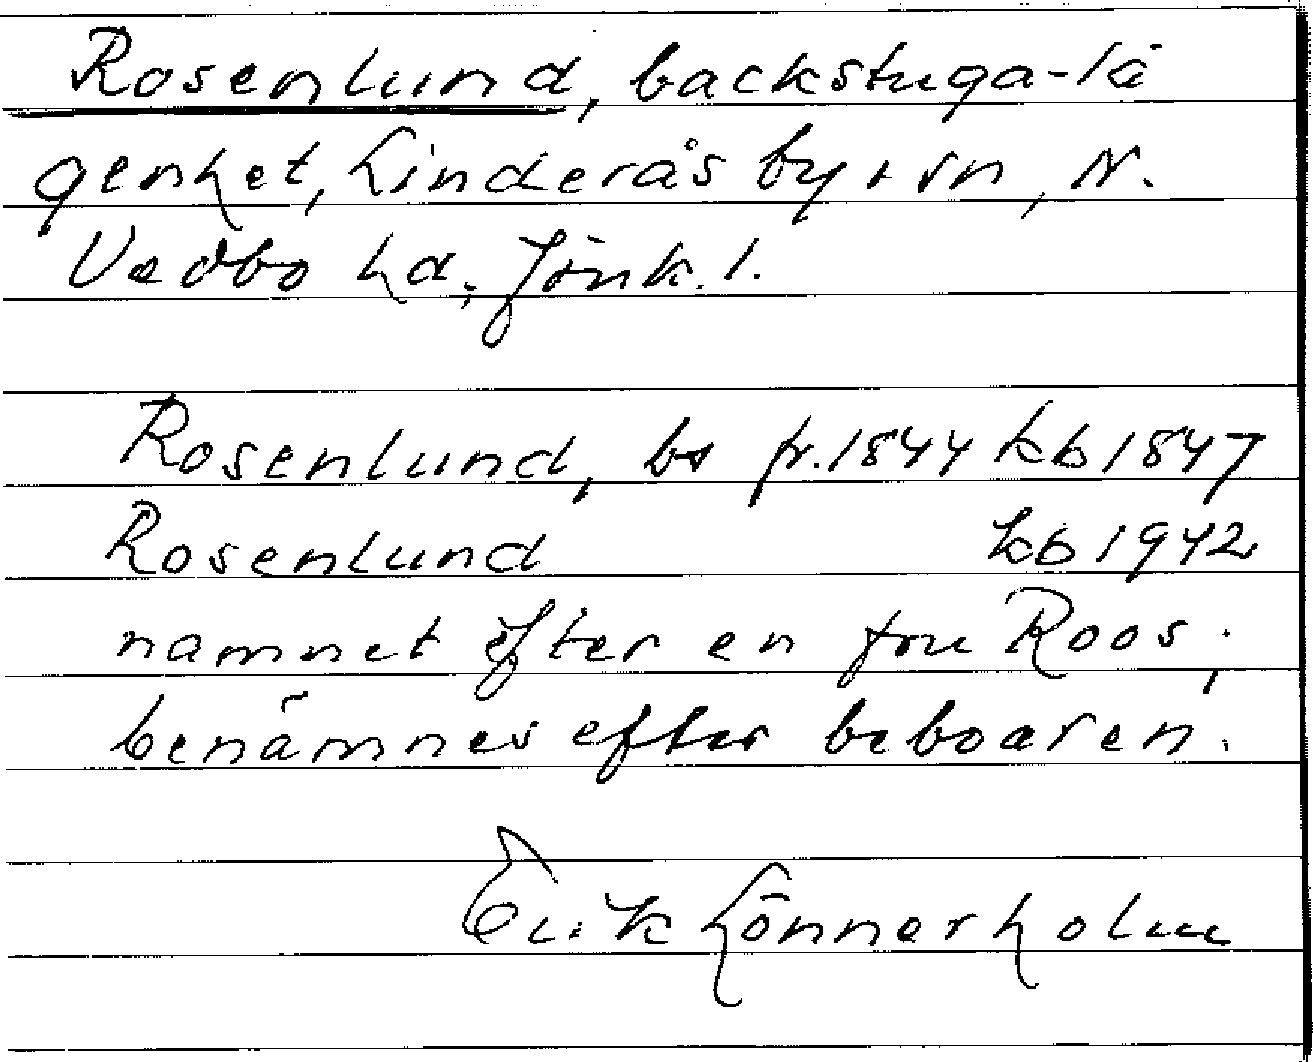 Rosenlund, backstuga-lä
genhet, Linderås by + sn, N.
Vedbo hd, Jönk. l.
Rosenlund, bs fr. 1844 kb 1847
Rosenlund kb 1942
namnet efter en fru Roos;
benämnes efter beboaren.
Erik Lönnerholm